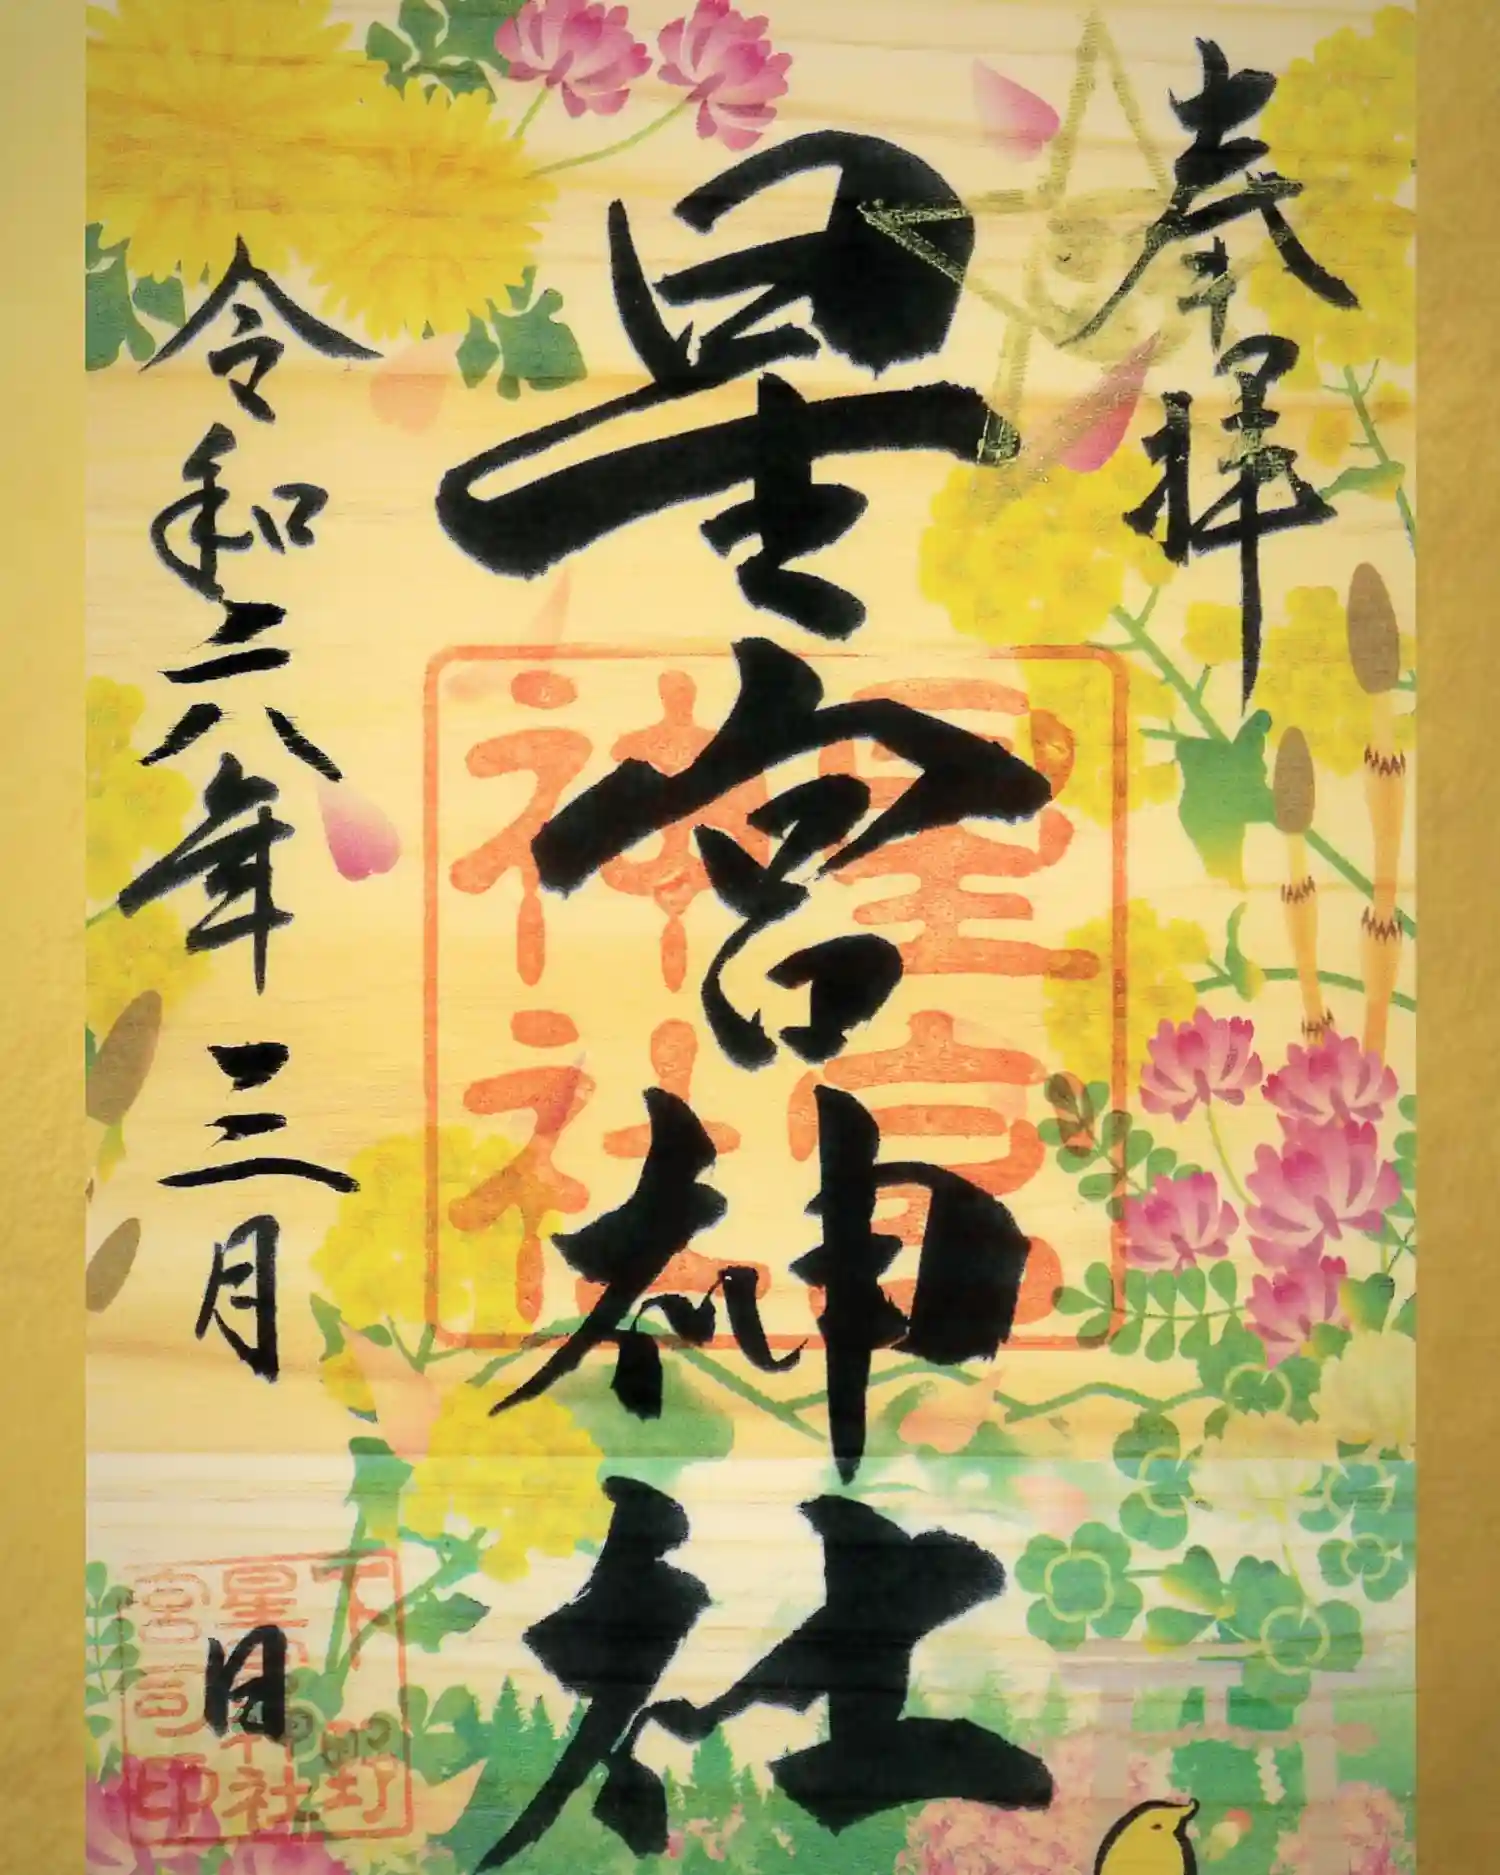 奉拝
星宮神社
令和六年三月 日
星宮
神社
下野
星宮神社
宮司印